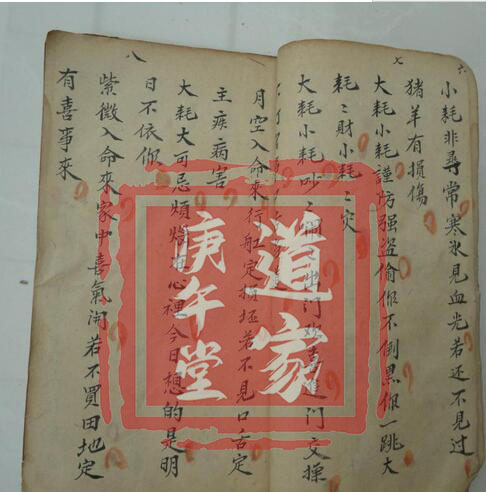 六
小耗非尋常寒氷見血光若还不見过
猪羊有損傷
七
大耗小耗謹防强盗偷你不倒黑你一跳大
耗〻財小耗〻灾
大耗小耗吵〻出门欢喜進门交操
八
月空入命來行船定損坯若不見口舌定
主疾病害
大耗大可忌煩惱心裡今日想的是明
日不依你
紫微入命來家中喜氣開若不買田地定
有喜事來
道家
庚午堂